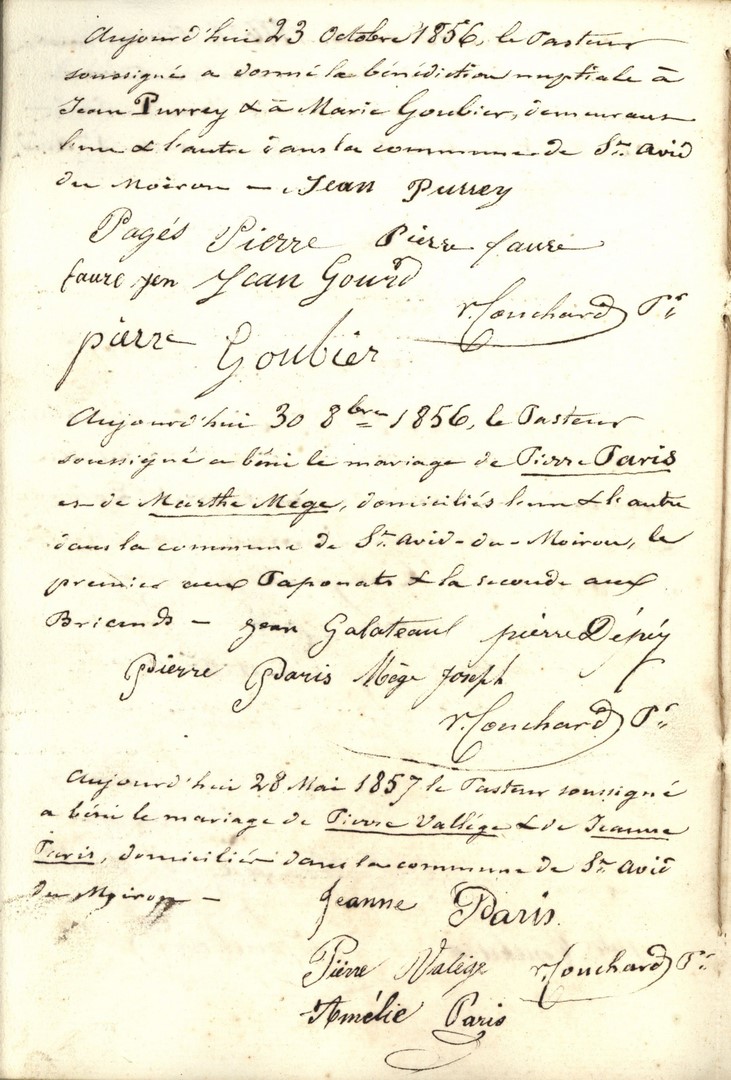 Aujourd'hui 23 Octobre 1856, le Pasteur
soussigné a donné la bénédiction nuptiale à
Jean Purrey & à Marie Goubier, demeurant
l'un & l'autre dans la commune de St. Avid
du Moiron — Jean Purrey
Pagés Pierre Pierre faure
faure jen Jean Gourd
r. Couchard Pr.
pierre Goubier
Aujourd'hui 30 8bre 1856, le Pasteur
soussigné a béni le mariage de Pierre Paris
et de Marthe Mége, domiciliés l'un & l'autre
dans la commune de St. Avid-du-Moiron, le
premier aux Taponats & la seconde aux
Briands — jean Galateau pierre Dépéy
Pierre Paris Mége Joseph
r. Couchard Pr.
Aujourd'hui 28 Mai 1857 le Pasteur soussigné
a béni le mariage de Pierre Vallége & de Jeanne
Paris, domiciliés dans la commune de St. Avid
du Moiron —
Jeanne Paris.
Pierre Valége r. Couchard Pr.
Amélie Paris